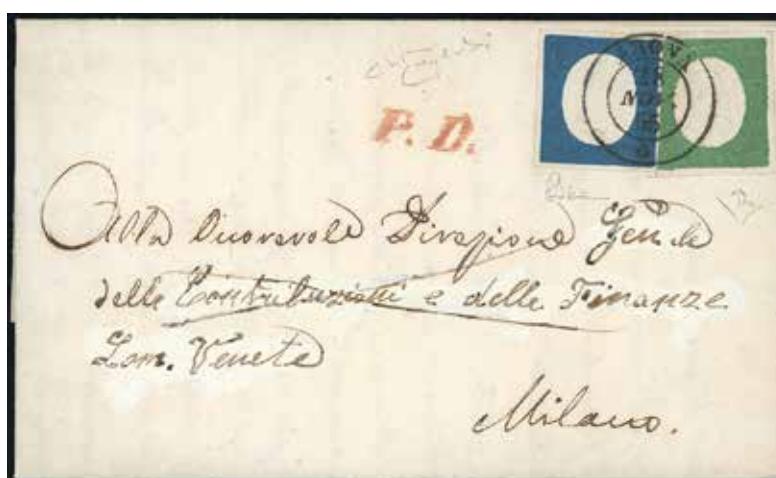 P. D.
Alla Onorevole Direzione
delle Contribuzioni e delle Finanze
Lom. Venete
Milano.